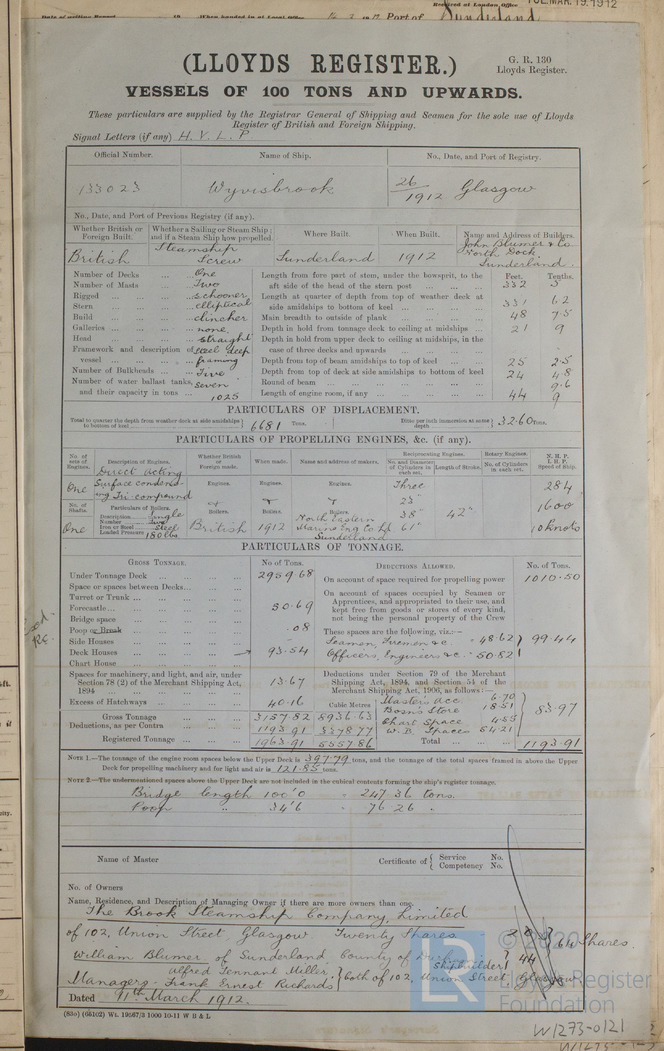 Received at London Office TUE. MAR. 19. 1912
Date of writing Report 19 When handed in at Local Office 16. 3. 19 12 Port of Sunderland
(LLOYDS REGISTER.)
G. R. 130
Lloyds Register.
VESSELS OF 100 TONS AND UPWARDS.
These particulars are supplied by the Registrar General of Shipping and Seamen for the sole use of Lloyds
Register of British and Foreign Shipping.
Signal Letters (if any) H. V. L. P
Official Number. Name of Ship. No., Date, and Port of Registry.
133023 Wyvisbrook 26/1912 Glasgow
No., Date, and Port of Previous Registry (if any).
Whether British or Foreign Built. Whether a Sailing or Steam Ship; and if a Steam Ship how propelled. Where Built. When Built. Name and Address of Builders.
British Steamship Screw Sunderland 1912 John Blumer & Co North Dock, Sunderland.
Number of Decks One
Number of Masts Two
Rigged schooner
Stern elliptical
Build clincher
Galleries none
Head straight
Framework and description of vessel steel deep framing
Number of Bulkheads Five
Number of water ballast tanks, and their capacity in tons seven 1025
Feet. Tenths.
Length from fore part of stem, under the bowsprit, to the aft side of the head of the stern post 332 5
Length at quarter of depth from top of weather deck at side amidships to bottom of keel 331 62
Main breadth to outside of plank 48 7.5
Depth in hold from tonnage deck to ceiling at midships 21 9
Depth in hold from upper deck to ceiling at midships, in the case of three decks and upwards
Depth from top of beam amidships to top of keel 25 2.5
Depth from top of deck at side amidships to bottom of keel 24 4.8
Round of beam 9.6
Length of engine room, if any 44 9
PARTICULARS OF DISPLACEMENT.
Total to quarter the depth from weather deck at side amidships to bottom of keel 6681 Tons. Ditto per inch immersion at same depth 32.60 Tons.
PARTICULARS OF PROPELLING ENGINES, &c. (if any).
No. of sets of Engines. Description of Engines. Whether British or Foreign made. When made. Name and address of makers. Reciprocating Engines. Rotary Engines. N. H. P. I. H. P. Speed of Ship.
No. and Diameter of Cylinders in each set. Length of Stroke. No. of Cylinders in each set.
One Direct Acting Surface condensing Tri-compound Engines. Engines. Engines. Three 23" 38" 61" 42" 284 1600 10 knots
No. of Shafts. Particulars of Boilers. Boilers. Boilers. Boilers.
One Description Single
Number Two
Iron or Steel Steel
Loaded Pressure 180 lbs
British 1912 North Eastern Marine Eng Co Ld Sunderland
PARTICULARS OF TONNAGE.
GROSS TONNAGE. No of Tons. DEDUCTIONS ALLOWED. No. of Tons.
Under Tonnage Deck 2959.68
Space or spaces between Decks
Turret or Trunk
Forecastle 50.69
Bridge space
Poop or Break .08
Side Houses
Deck Houses 93.54
Chart House
Spaces for machinery, and light, and air, under Section 78 (2) of the Merchant Shipping Act, 1894 13.67
Excess of Hatchways 40.16
Cubic Metres
Gross Tonnage 3157.82 8936.63
Deductions, as per Contra 1193.91 3378.77
Registered Tonnage 1963.91 5557.86
On account of space required for propelling power 1010.50
On account of spaces occupied by Seamen or Apprentices, and appropriated to their use, and kept free from goods or stores of every kind, not being the personal property of the Crew
These spaces are the following, viz.:—
Seamen, Firemen &c. 48.62
Officers, Engineers &c. 50.82 } 99.44
Deductions under Section 79 of the Merchant Shipping Act, 1894, and Section 54 of the Merchant Shipping Act, 1906, as follows:—
Masters Acc 6.70
Bosns Store 18.51
Chart Space 4.55
W. B. Spaces 54.21 } 83.97
Total 1193.91
NOTE 1.—The tonnage of the engine room spaces below the Upper Deck is 397.79 tons, and the tonnage of the total spaces framed in above the Upper
Deck for propelling machinery and for light and air is 121.85 tons.
NOTE 2.—The undermentioned spaces above the Upper Deck are not included in the cubical contents forming the ship's register tonnage.
Bridge length 100'0 = 247.36 tons.
Poop " 34'6 " 76.26 "
Name of Master Certificate of { Service No. Competency No.
No. of Owners
Name, Residence, and Description of Managing Owner if there are more owners than one.
The Brook Steamship Company, Limited
of 102, Union Street, Glasgow Twenty Shares 20
William Blumer of Sunderland, County of Durham Shipbuilder 44 } 64 Shares.
Managers Alfred Tennant Miller, Frank Ernest Richards } both of 102, Union Street Glasgow
Dated 11th March 1912.
(830) (66102) Wt. 19567/3 1000 10-11 W B & L
© 2020
LR
Lloyd's Register
Foundation
W1273-0121